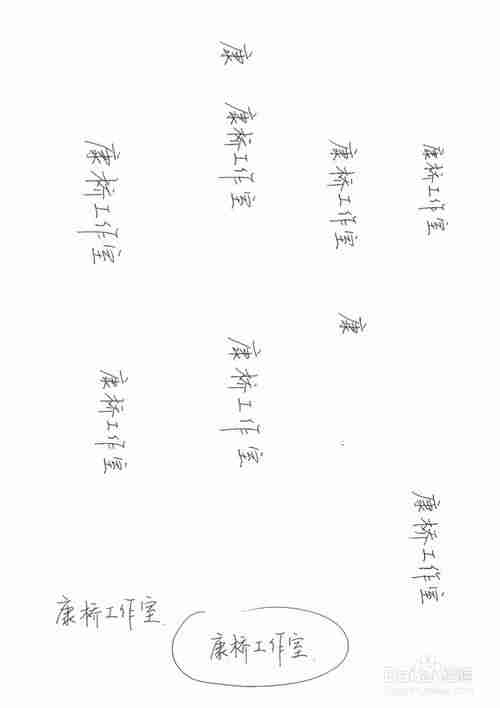 康
康桥工作室
康桥工作室
康桥工作室
康桥工作室
康
康桥工作室
康桥工作室
康桥工作室
康桥工作室.
康桥工作室.
Baidu经验